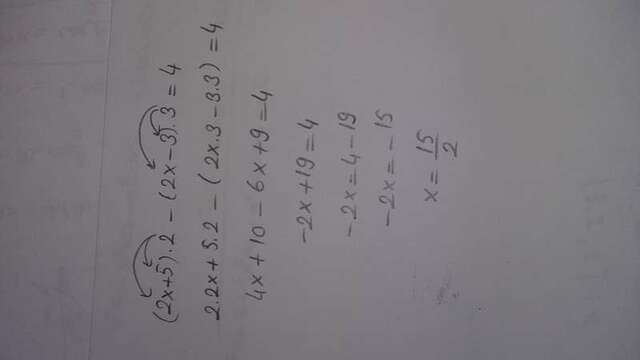 (2x+5).2 - (2x-3).3 = 4
2.2x + 5.2 - (2x.3 - 3.3) = 4
4x + 10 - 6x + 9 = 4
-2x + 19 = 4
-2x = 4 - 19
-2x = -15
x = 15/2